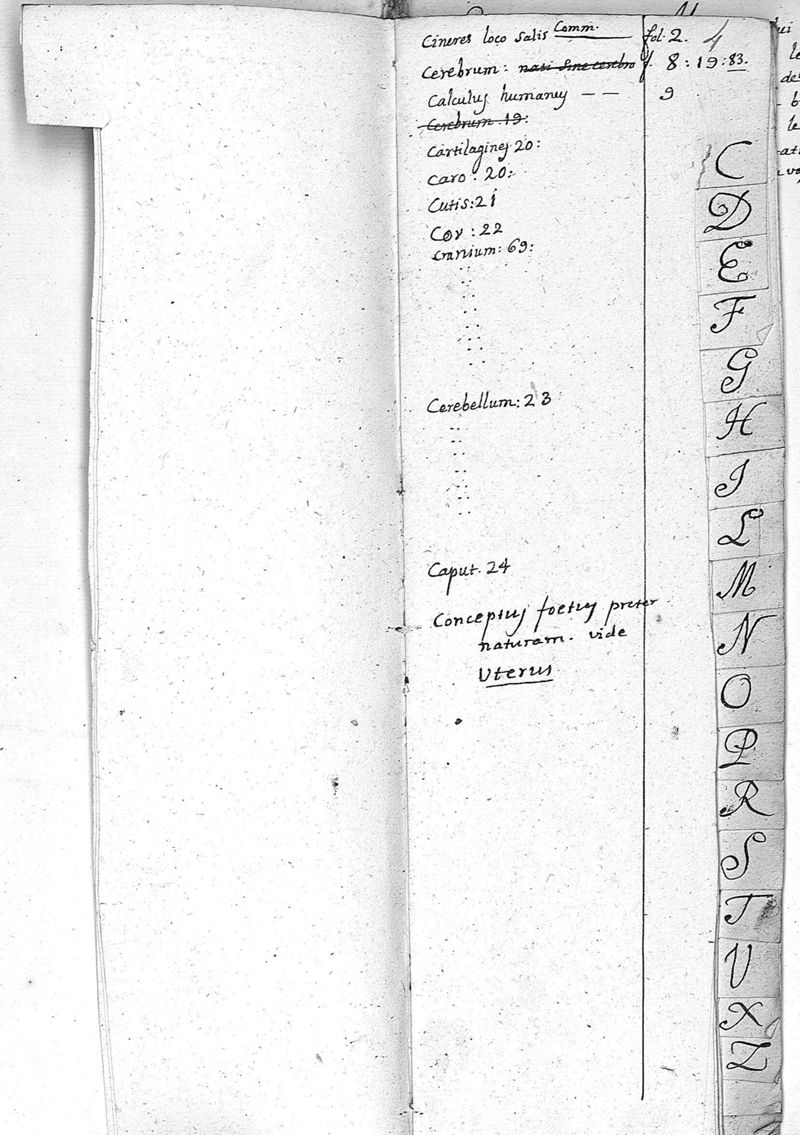 Cineres loco salis Comm. fol. 2. 4
Cerebrum: nati sine cerebro f. 8: 19: 83.
Calculus humanus — — 9
Cerebrum 19:
Cartilagines 20:
Caro: 20:
Cutis: 21
Cor: 22
Cranium: 69:
Cerebellum: 23
Caput. 24
Conceptus foetus preter
naturam. vide
Uterus
C
D
E
F
G
H
I
L
M
N
O
P
R
S
T
U
X
Z